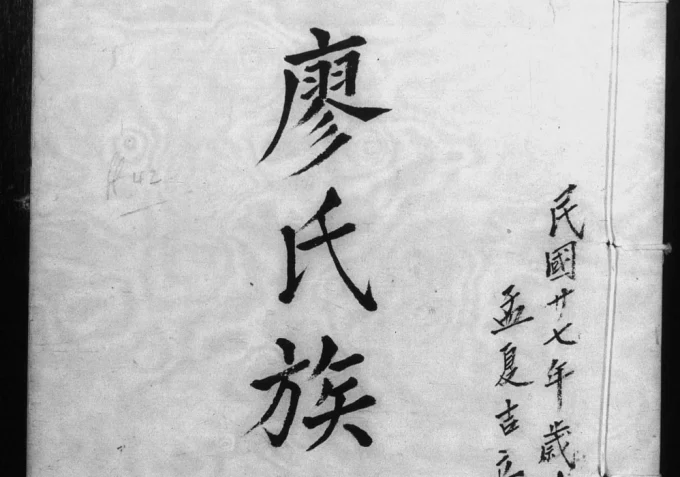 民國廿七年歲
孟夏吉立
廖氏族